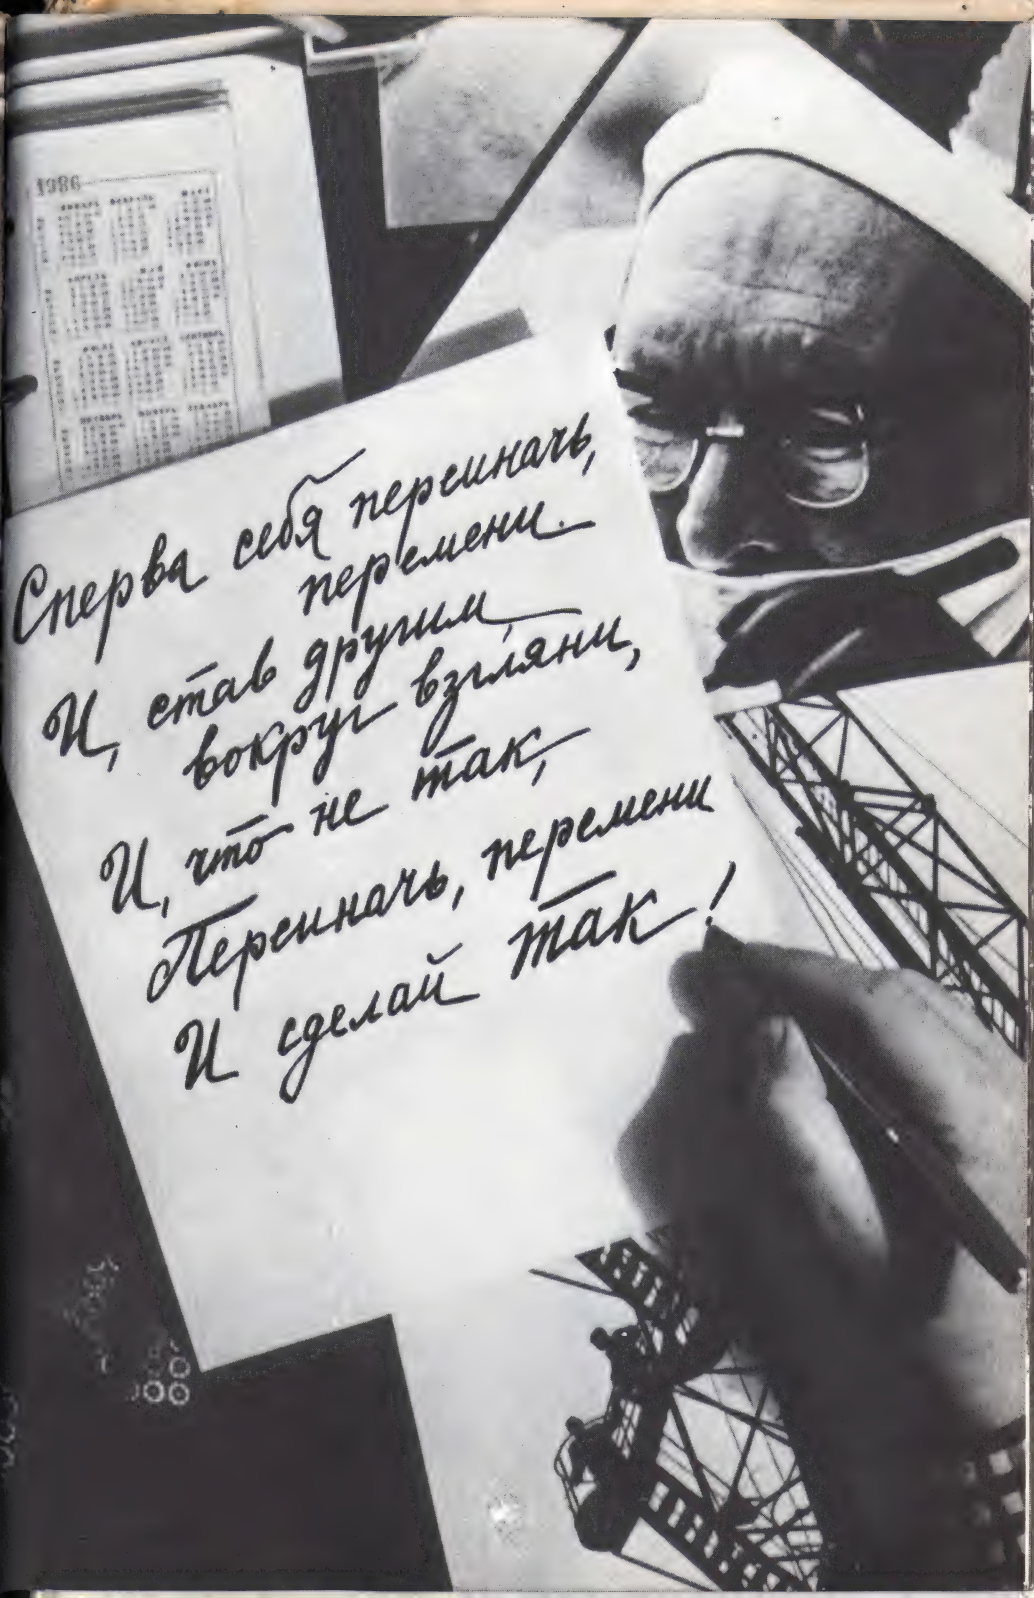 1986
Сперва себя переиначь,
перемени.
И, став другим,
вокруг взгляни,
И, что не так,
Переиначь, перемени
И сделай так!